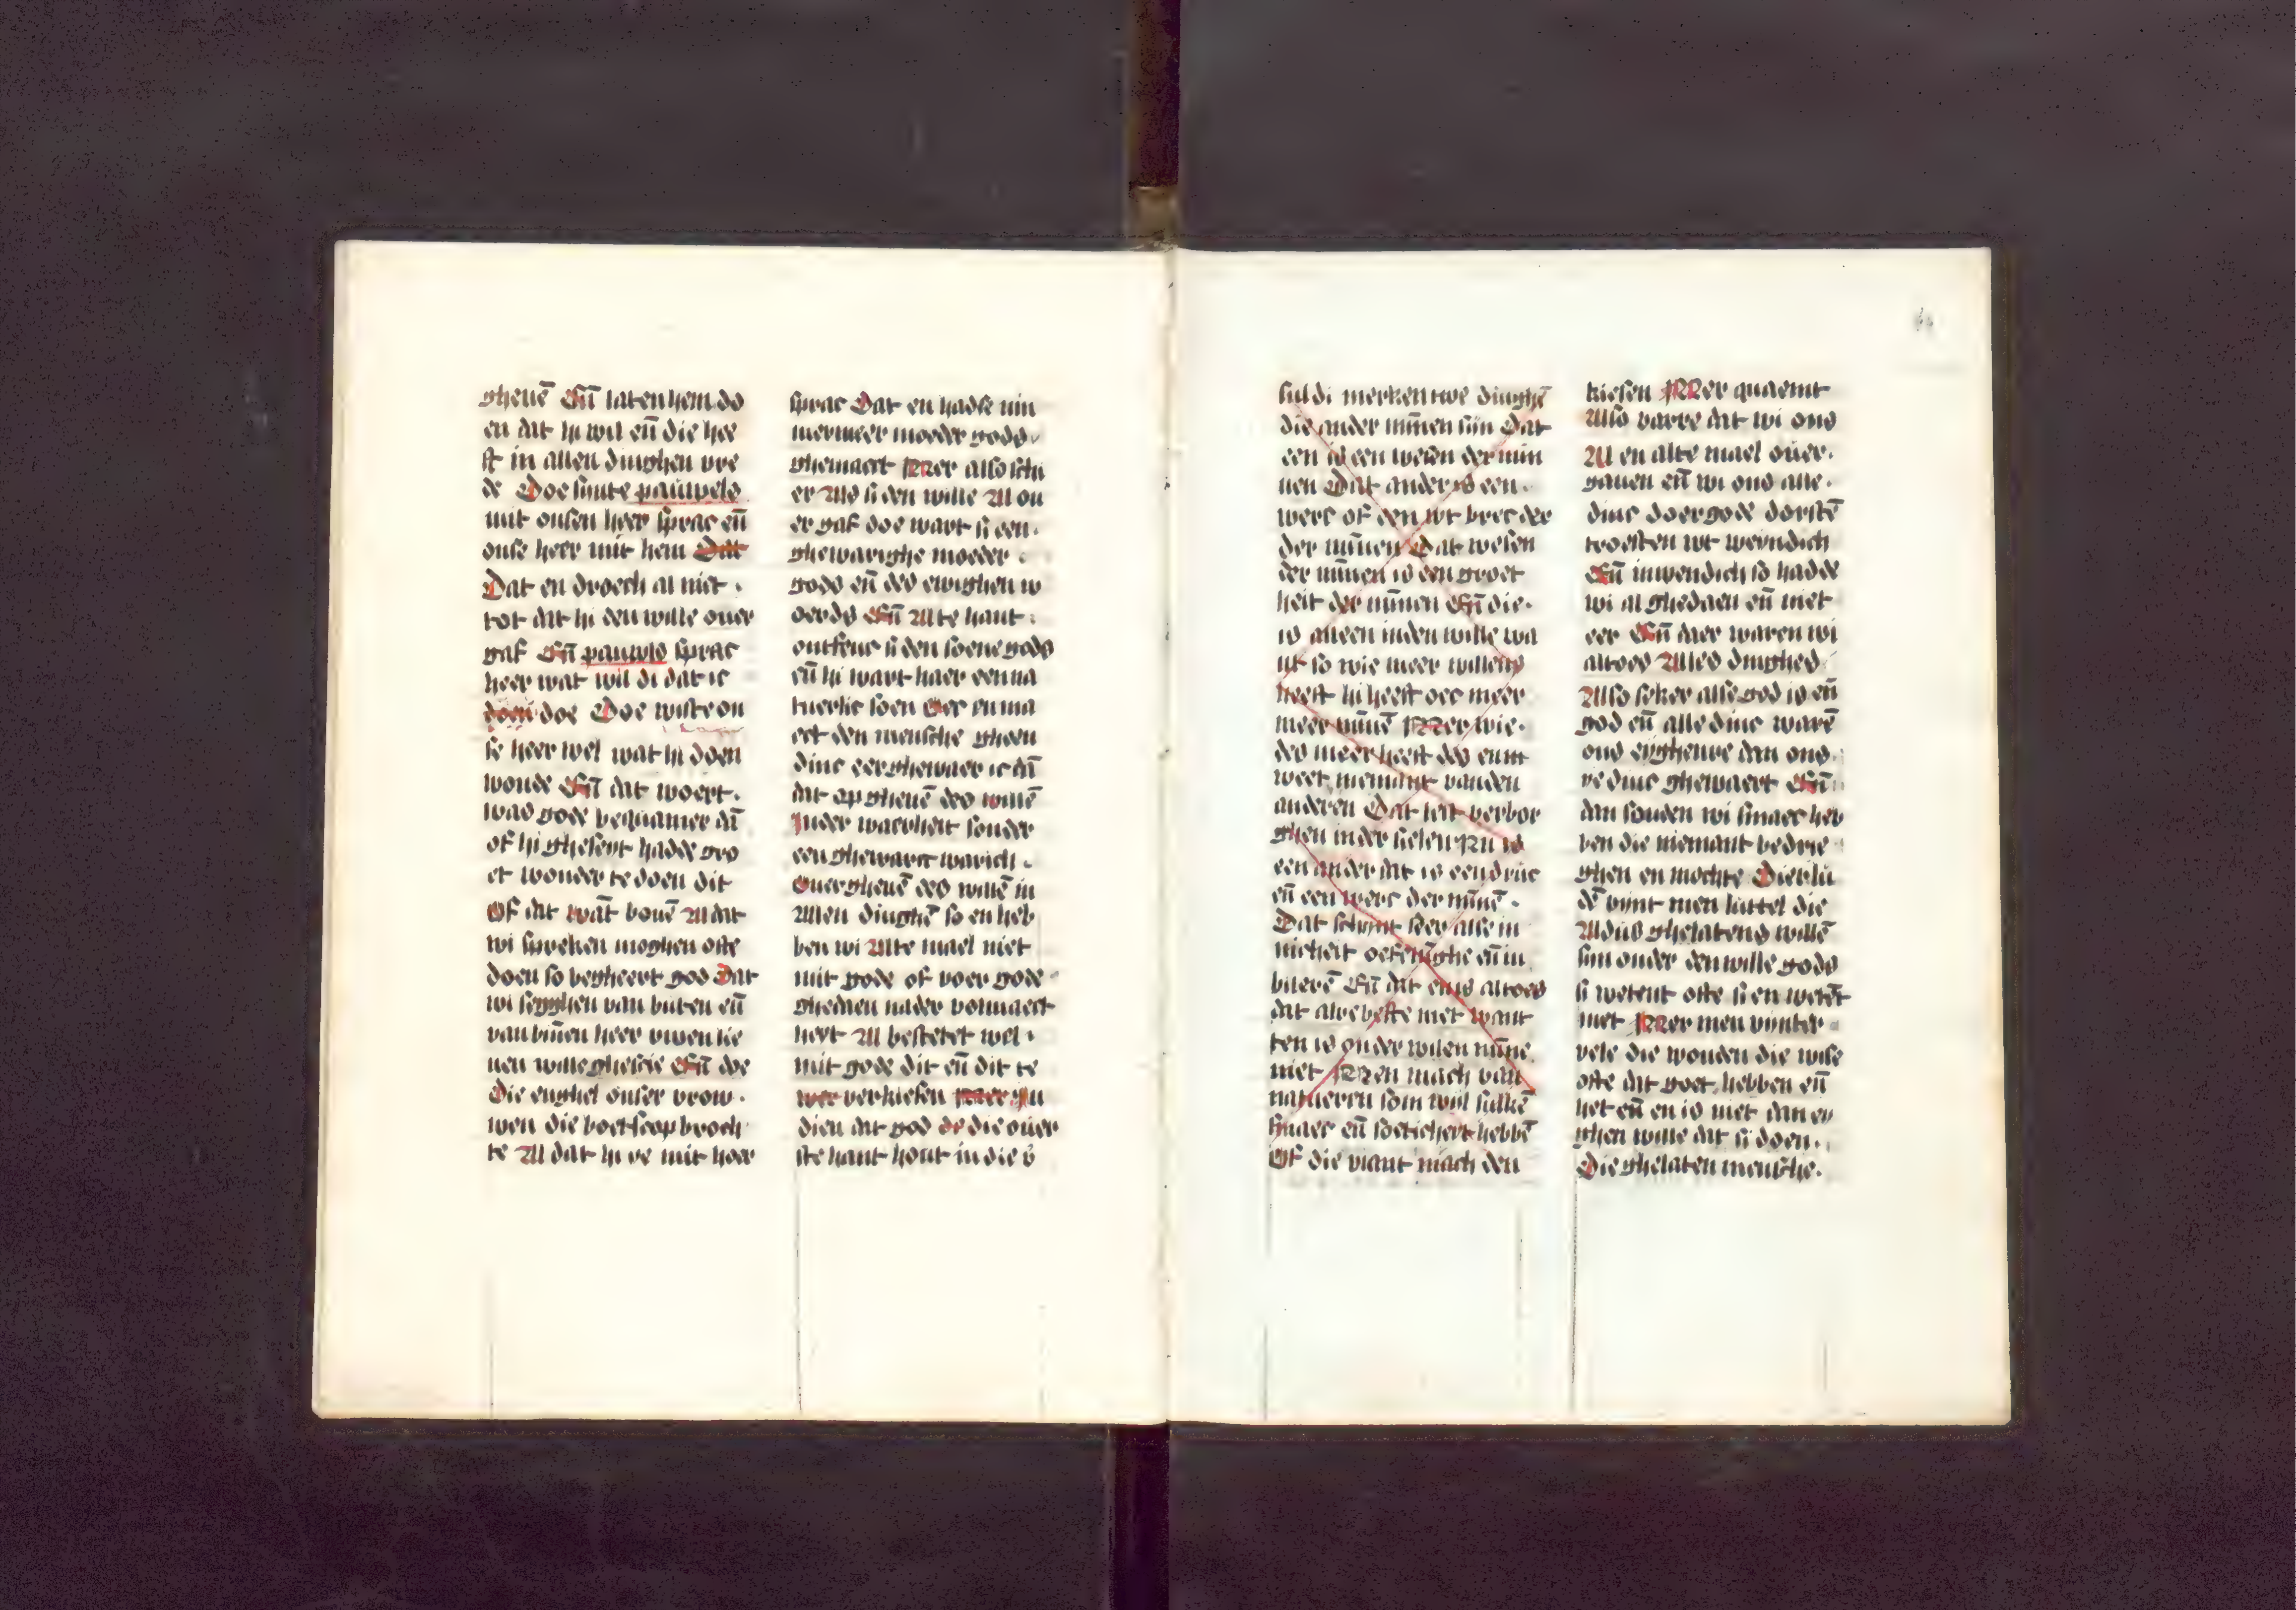 gheuē Eñ laten hem do
en dat hi wil eñ die hee
ft in allen dinghen vre
de Doe sinte pauwels
mit onsen heer sprac eñ
onse heer mit hem Dat
Dat en droech al niet .
tot dat hi den wille ouer
gaf Eñ pauwels sprac
heer wat wil di dat ic
doen doe Doe wiste on
se heer wel wat hi doen
woude Eñ dat woert .
was gode bequamer dā
of hi ghesent hadde gro
et wonder te doen dit
Of dat wāt bouē Al dat
wi spreken moghen ofte
doen so begheert god Dat
wi segghen van buten eñ
van bīnen heer uwen lie
uen wille ghescie Eñ doe
Die enghel onser vrow .
wen die boetscap broch
te Al dat hi ye mit hoer
sprac Dat en hadse nin
mermeer moeder gods .
ghemaect Mer also sch
er Als si den wille Al ou
er gaf doe wart si een .
ghewarighe moeder .
gods eñ des ewighen w
oerds Eñ Alte hant .
ontfenc si den soene gods
eñ hi wart haer een na
tuerlic soen Oec en ma
ect den mensche gheen
dinc eer ghewaer ic dā
dat op gheuē des willē
Inder waerheit sonder
een ghewaer warich .
Ouergheuē des willē in
Allen dinghē so en heb
ben wi Alte mael niet
mit gode of voer gode
ghedaen nader volmaect
heit Al bestetet wel .
mit gode dit eñ dit te
wer verkiesen Mer
dien dat god de die ouer
ste hant hout in die v
suldi merken twe dinghē
die ander mīnen sijn Dat
een is een wesen der min
nen Dat ander is een .
werc of een wt brec der
der mīnen Dat wesen
der mīnen is een groet
heit der mīnen Eñ die .
is alleen inden wille wa
nt so wie meer willens
heeft hi heeft oec meer
meer mīnē Mer wie .
des meer heeft des enm
weet niemant vanden
anderen Dat leit verbor
ghen in der sielen Nu is
een ander dat is een druc
eñ een werc der mīnē .
Dat schijnt seer alse in
nicheit oefenīghe eñ iu
bilerē Eñ dat en is altoes
dat alre beste niet want
ten is onder wilen mīne
niet Men mach van
natueren som wijl sulkē
smaec eñ soeticheit hebbē
Of die viant mach den
kiesen Mer quaemt
Also varre dat wi ons
Al en alte mael ouer .
gauen eñ wi ons alle .
dinc doer gode dorstē
troesten wt wendich
Eñ inwendich so hadde
wi al ghedaen eñ niet
eer Eñ daer waren wi
altoes Alles dinghes
Also seker alse god is eñ
god eñ alle dinc warē
ons eyghenre dan ons .
ye dinc ghewaert Eñ
dan souden wi smaec heb
ben die niemant bedrie
ghen en mochte Dier lu
dē vijnt men luttel die
Aldus ghelatens willē
sijn onder den wille gods
si wetent ofte si en wetēt
niet Mer men vijnter
vele die wouden die wise
ofte dat goet hebben eñ
het eñ en is niet dan ey
ghen wille dat si doen .
Die ghelaten mensche .